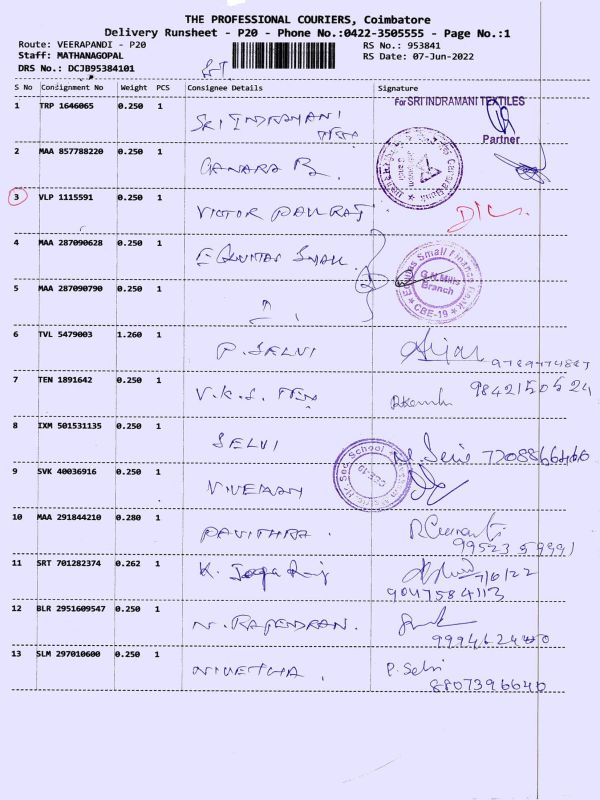 THE PROFESSIONAL COURIERS, Coimbatore
Delivery Runsheet - P20 - Phone No.:0422-3505555 - Page No.:1
Route: VEERAPANDI - P20 RS No.: 953841
Staff: MATHANAGOPAL RS Date: 07-Jun-2022
DRS No.: DCJB95384101
S No Consignment No Weight PCS Consignee Details Signature
1 TRP 1646065 0.250 1 SRI INDRAMANI For SRI INDRAMANI TEXTILES
Partner
2 MAA 857788220 0.250 1 CANARA B
3 VLP 1115591 0.250 1 VICTOR PAULRAJ
4 MAA 287090628 0.250 1 EQUITAS SMALL
Equitas Small Finance Bank
G.N.Mills Branch
CBE-19
5 MAA 287090790 0.250 1
6 TVL 5479003 1.260 1 P. SELVI
7 TEN 1891642 0.250 1 V.K.S. 9842150524
8 IXM 501531135 0.250 1 SELVI 7208866460
9 SVK 40036916 0.250 1
10 MAA 291844210 0.280 1 PAVITHRA.
11 SRT 701282374 0.262 1 K. 7/6/22
9047584113
12 BLR 2951609547 0.250 1 N. RAJENDRAN.
13 SLM 297010600 0.250 1 NIVETHA. P. Selvi
8807396640